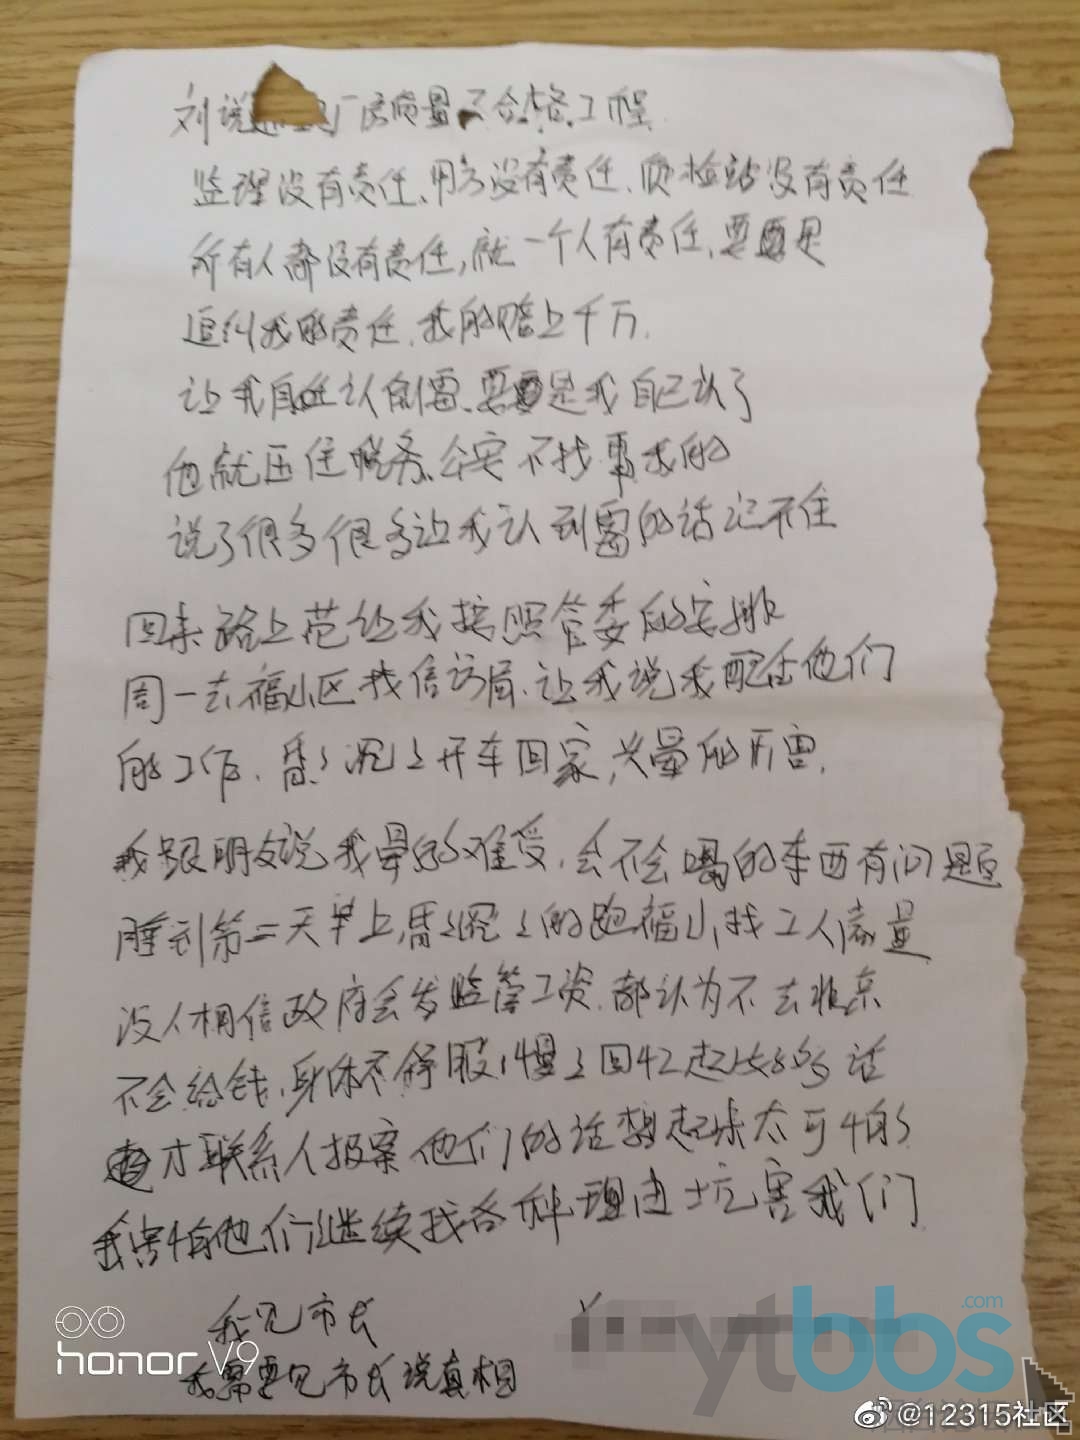 刘说 厂房质量不合格工程
监理没有责任、用方没有责任、质检站没有责任
所有人都没有责任,就一个人有责任,要是
追纠我的责任.我的赔上千万.
让我自 认倒霉、要是我自己认了
他就压住税务、公安不找事我的
说了很多很多让我认到霉的话记不住
回来路上范让我按照管委的安排
周一去福山区找信访局、让我说我配合他们
的工作、昏昏沉沉开车回家,头晕的历害,
我跟朋友说我晕的难受,会不会喝的东西有问题
睡到第二天早上,昏昏沉沉的跑福山找工人商量
没人相信政府会发监管工资.都认为不去北京
不会给钱.身体不舒服,慢慢回忆起好多话
才联系人报案他们的话想起来太可怕了
我害怕他们继续找各种理由坑害我们
我见市长
我需要见市长说真相
honor V9
ytbbs.com
@12315社区